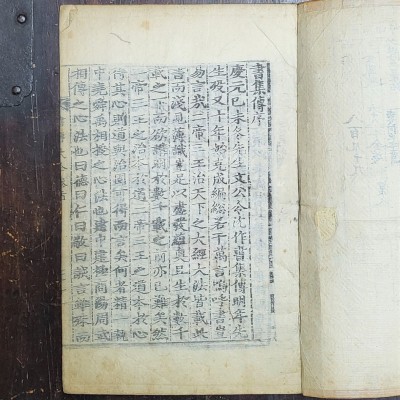 書集傳序
慶元己未冬先生文公令沈作書集傳明年先
生歿又十年始克成編總若干萬言嗚呼書豈
易言哉二帝三王治天下之大經大法皆載此
書而淺見薄識豈足以盡發蘊奧且生於數千
載之下而欲講明於數千載之前亦已難矣然
二帝三王之治本於道二帝三王之道本於心
得其心則道與治固可得而言矣何者精一執
中堯舜禹相授之心法也建中建極商湯周武
相傳之心法也曰德曰仁曰敬曰誠言雖殊而